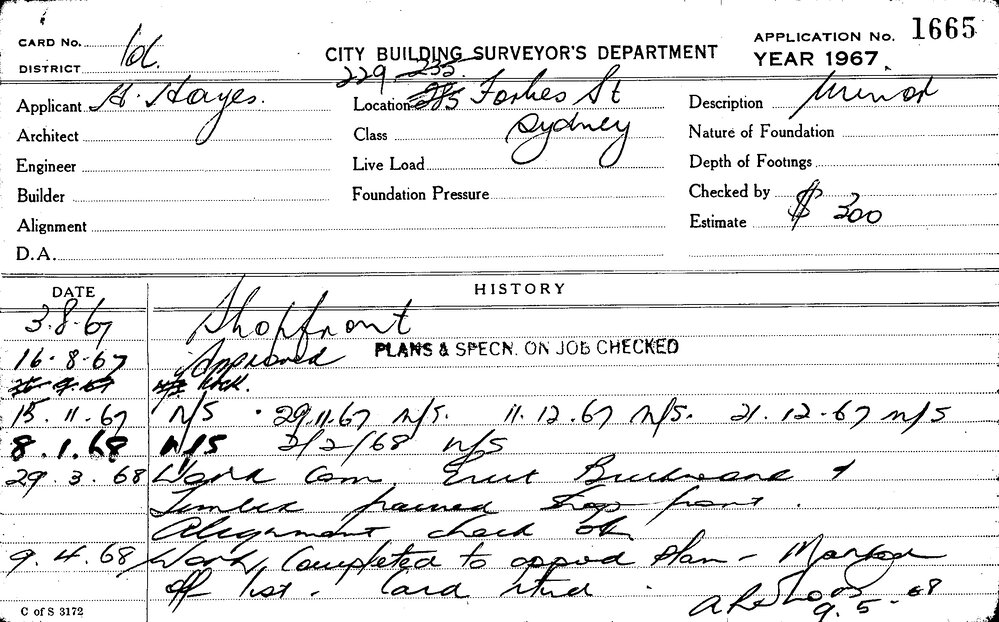 CARD No.
DISTRICT
CITY BUILDING SURVEYOR'S DEPARTMENT
APPLICATION No. 1665
YEAR 1967.
Applicant H. Hayes.
Architect
Engineer
Builder
Alignment
D.A.
229 235
Location Forbes St
Class Sydney
Live Load
Foundation Pressure
Description Minor
Nature of Foundation
Depth of Footings
Checked by
Estimate $ 300
DATE HISTORY
3.8.67 Shopfront
16.8.67 Approved PLANS & SPECN. ON JOB CHECKED
15.11.67 N/S . 29.11.67 N/S. 11.12.67 N/S. 21.12.67 N/S
8.1.68 N/S 2/2/68 N/S
29.3.68 Work Com, Erect Brickwork &
Timber framed Shop front.
Alignment check ok
9.4.68 Work Completed to appvd plan - Marked
off list. Card
9.5.68
C of S 3172